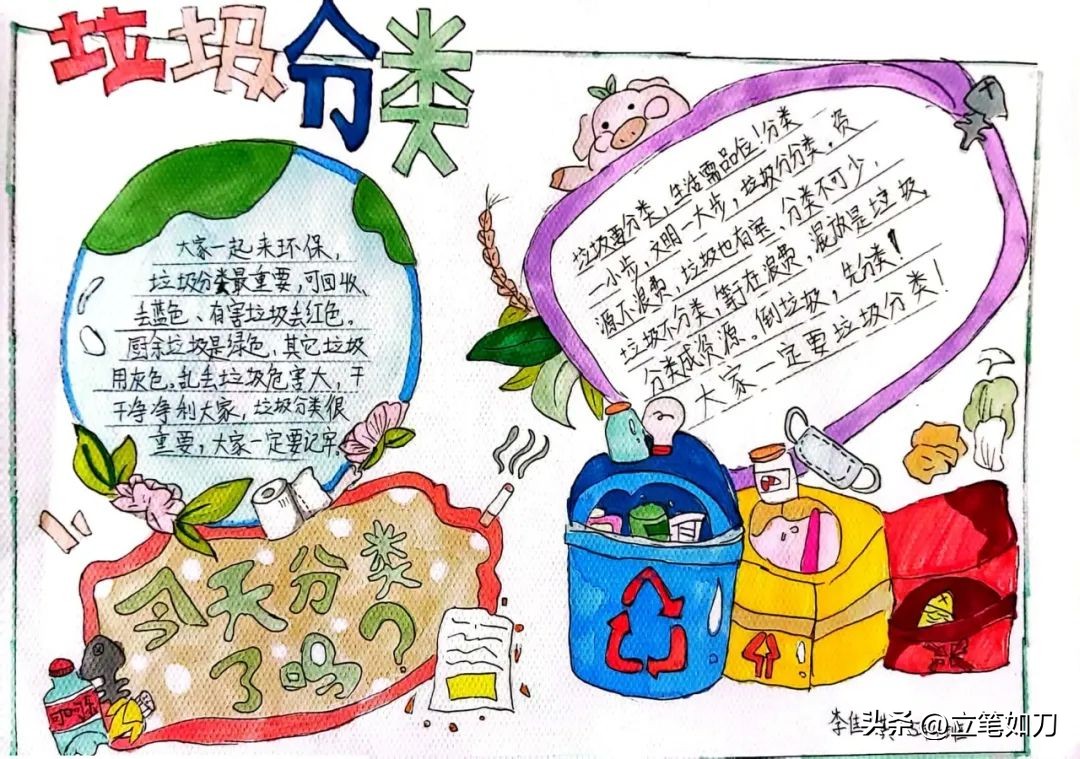 垃圾分类
大家一起来环保,
垃圾分类最重要,可回收、
丢蓝色、有害垃圾丢红色。
厨余垃圾是绿色,其它垃圾
用灰色。乱丢垃圾危害大,干
干净净利大家,垃圾分类很
重要,大家一定要记牢。
垃圾要分类,生活需品位!分类
一小步,文明一大步,垃圾分分类,资
源不浪费,垃圾也有害、分类不可少,
垃圾不分类,等于在浪费,混放是垃圾,
分类成资源。倒垃圾,先分类!
大家一定要垃圾分类!
今天分类
了吗?
可乐
李佳
头条@立笔如刀